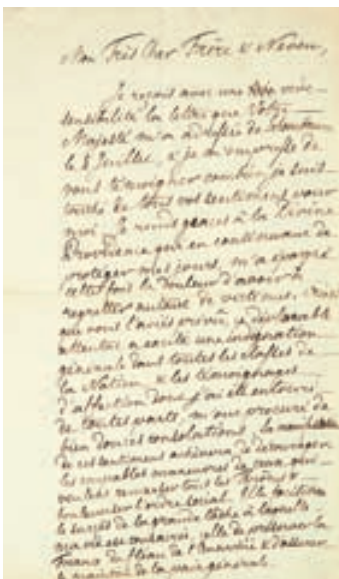 Mon Très Cher Frère & Neveu,
Je reçois avec une vive
sensibilité la lettre que Votre
Majesté m'a adressée de
le 8 Juillet, & je m'empresse de
vous témoigner combien je suis
touché de tous vos sentiments pour
moi. Je rends graces à la Divine
Providence qui en continuant de
protéger mes jours, m'a épargné
cette fois la douleur d'avoir à
regretter de victimes.
que vous l'avés prévu, ce déplorable
attentat a excité une indignation
générale dans toutes les classes de
la Nation, & les témoignages
d'affection dont j'ai été entouré
de toutes parts, m'ont procuré de
bien douces consolations. La
de ces sentiments achèvera de décourager
les coupables manœuvres de ceux qui
veulent renverser tous les Thrônes &
bouleverser l'ordre social. Elle facilitera
le succès de la grande tâche à laquelle
ma vie est consacrée, celle de préserver la
France du fléau de l'Anarchie & d'assurer
le maintien de la paix générale